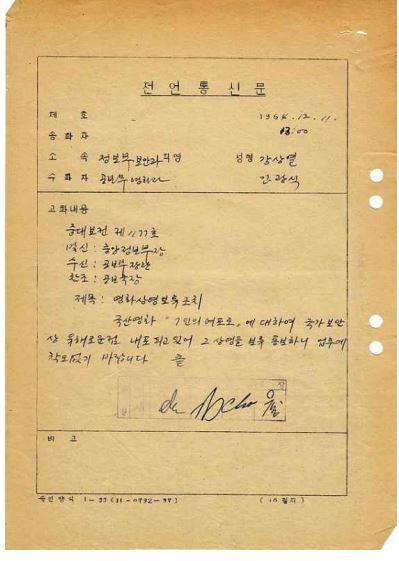 전 언 통 신 문
제 호 1964. 12. 11.
13:00
송 화 자
소 속 정보부 보안과 직명 성명 강상열
수 화 자 공보부 영화과 민광식
고화내용
중대보건 제 1177호
발신 : 중앙정보부장
수신 : 공보부장관
참조 : 공보국장
제목 : 영화상영보류조치
국산영화 "7인의 여포로" 에 대하여 국가보안
상 유해로운점 내포되고있어 그 상영을 보류 통보하니 업무에
착오없기 바랍니다 끝
비 고
1-33 (11-0792-39)